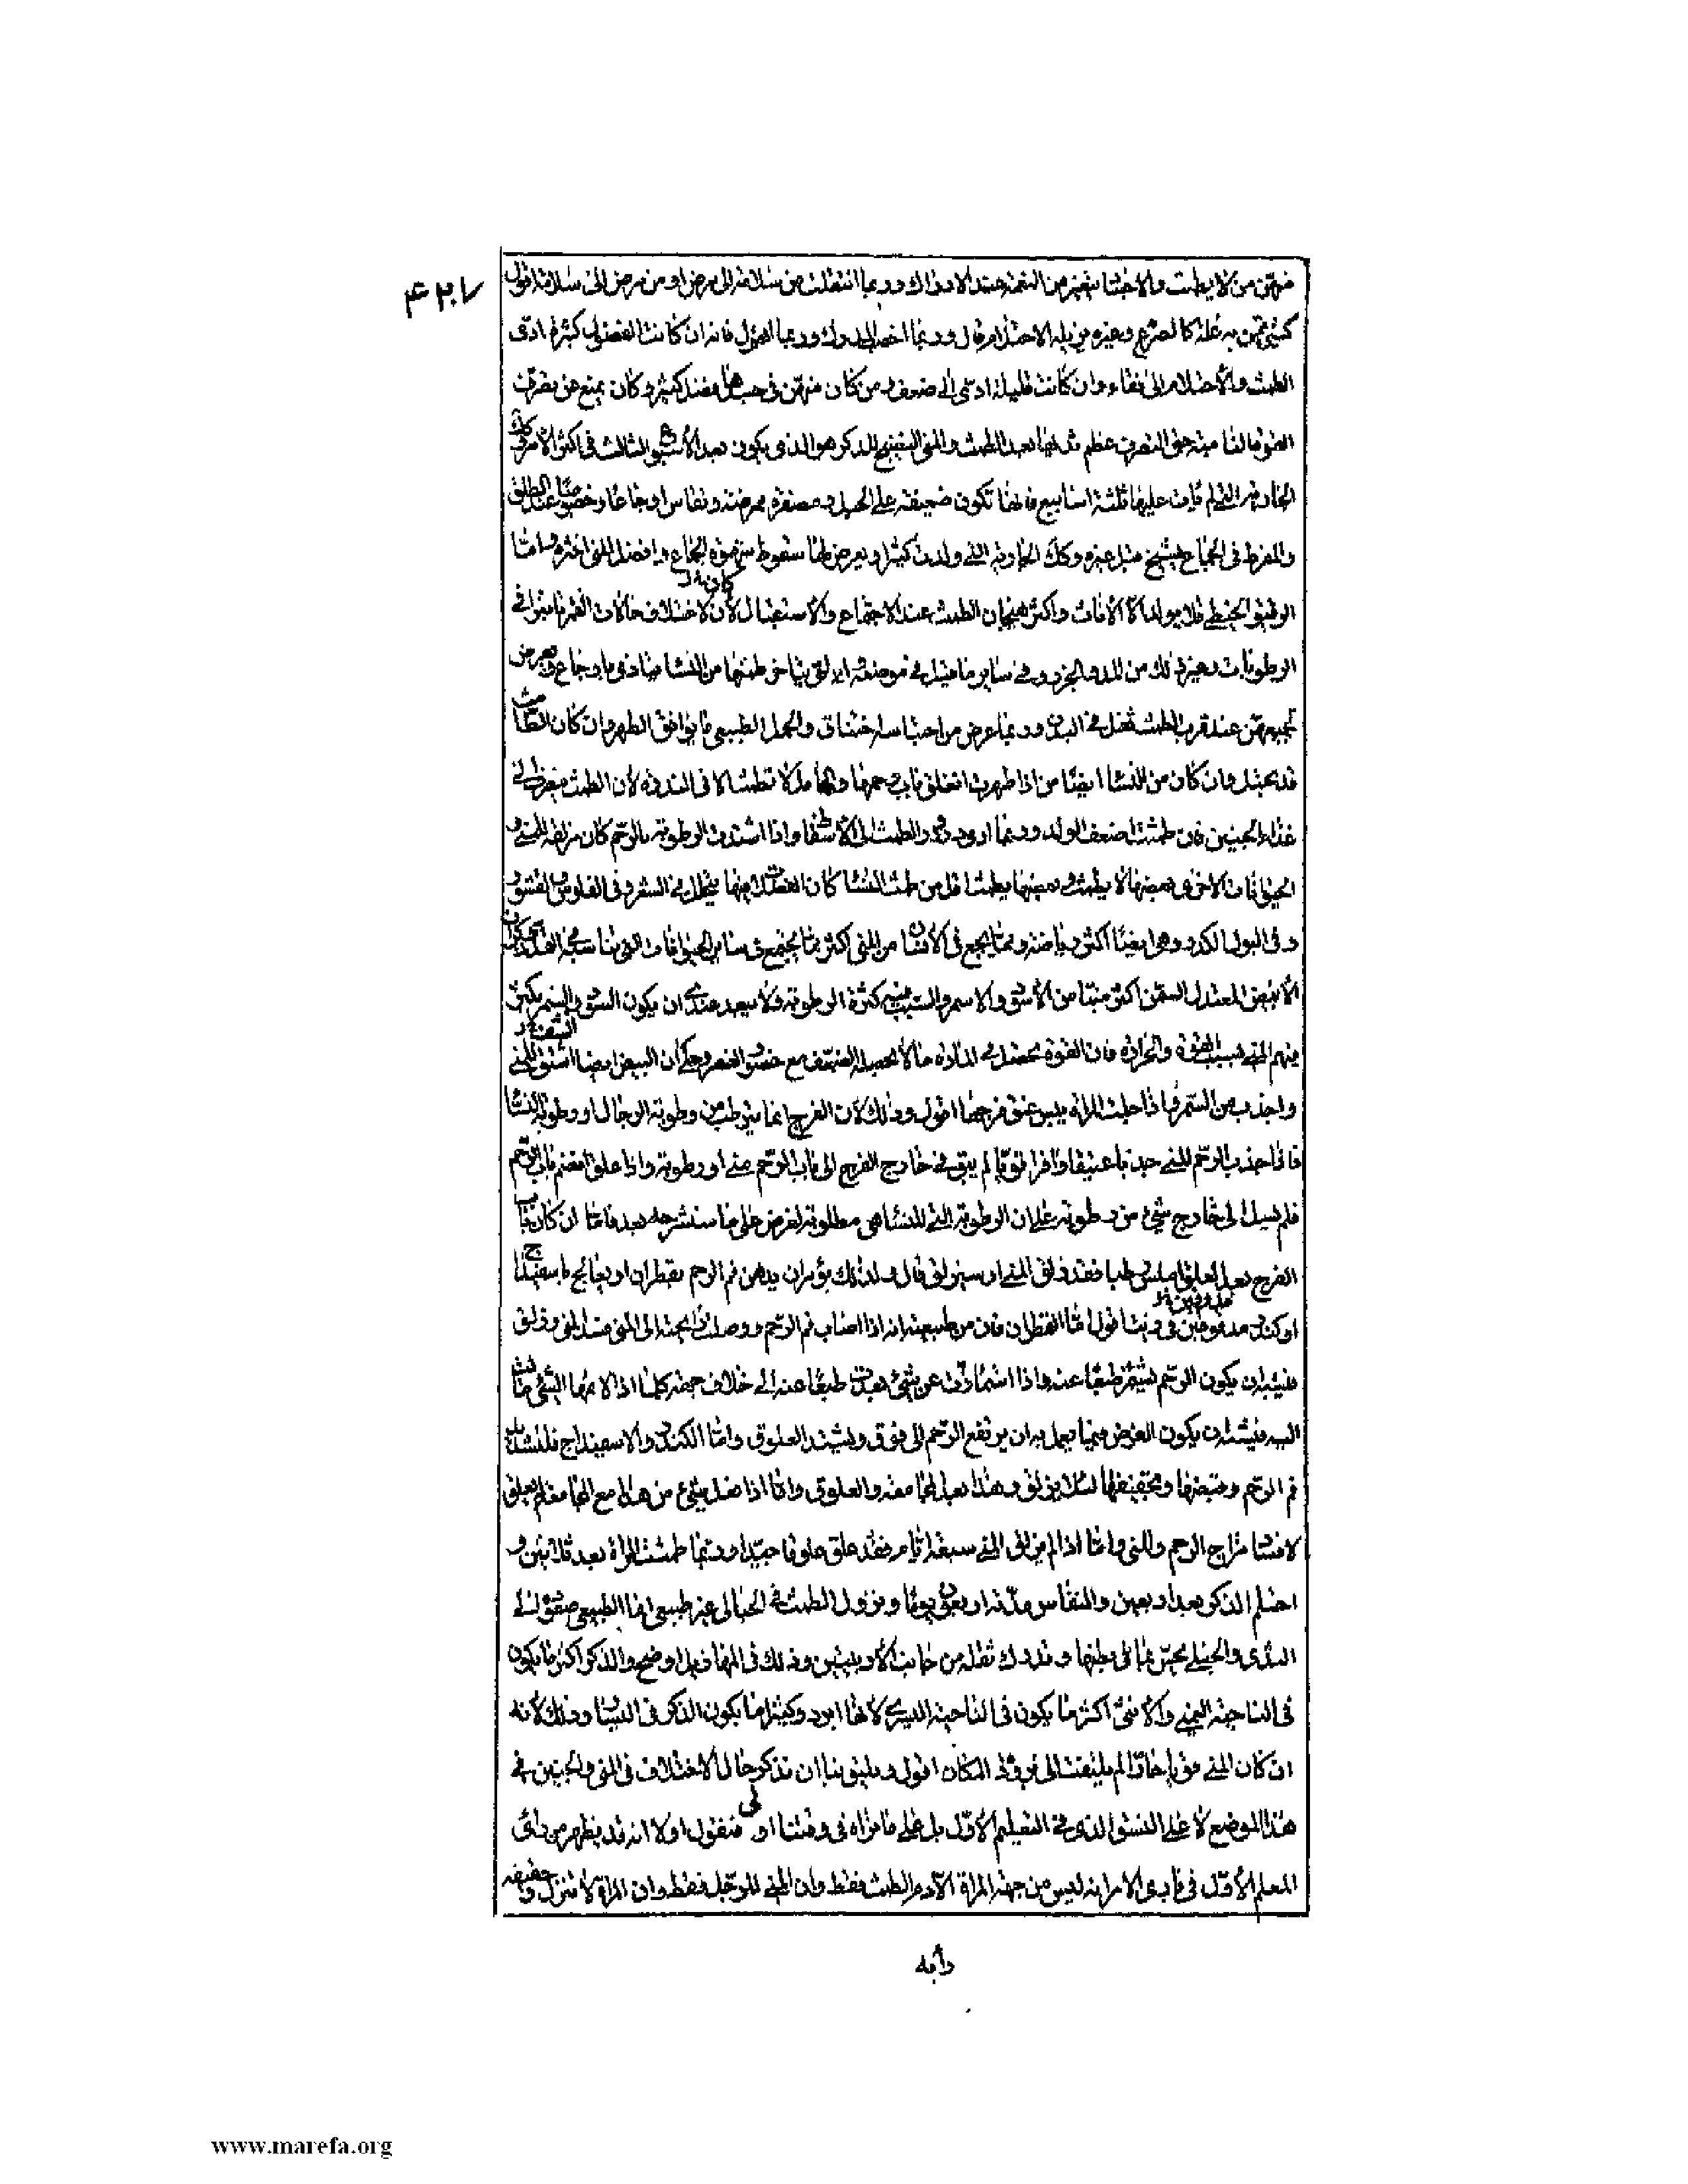 ٤٢٧
منهن من لا يطمث والاختلا يتغير من النغمة عند الادراك وربما انتقلت من سلامة الى مرض او من مرض الى سلامة اقول
كمن به علة كالصرع وغيره يزيله الاحتلام قال وربما اخصب المدرك وربما اهزل فانه ان كانت الفضول كثيرة ادى
الطمث والاحتلام الى نقاء وان كانت قليلة ادى الى ضعف ومن كان منهن في كثير وكان يمنع عن تصرف
بعد الطمث والمنى للذكر هو الذى يكون بعد الاسبوع الثالث في اكثر الامر
الجارية التى لم يأت عليها ثلثة اسابيع فانها تكون ضعيفة على الحبل ممرضة ونفاس اوجاعا وخصوصا عند الطلق
والمفرط في الجماع يشيخ قبل غيره وكك الجارية التى ولدت كثيرا ويعرض لها سقوط شهوة الجماع وافضل المنى اخثره واما
الرقيق الخيطى فلا يولد الا الاناث واكثر هيجان الطمث عند الاجتماع والاستقبال لان لاختلاف حالات القمر تأثيرا في
الرطوبات وغير ذلك من المد والجزر وفي ساير ما قيل في موضعه التى يتأخر طمثها من النساء يتأذى باوجاع ويعرض
لجميعهن عند قرب الطمث ثقل في البدن وربما عرض من احتباسه اختناق والحبل الطبيعى ما يوافق الطهر وان كان الطامث
قد تحبل وان كان من النساء ايضا من اذا طهرت انغلق باب رحمها والحامل لا تطمث الا في الندرة لان الطمث ينصرف الى
غذاء الجنين فان طمثت ضعف الولد وربما ادى درور الطمث الى الاسقاط واذا اشتدت الرطوبة بالرحم كان مزلقة للمنى و
الحيوانات الاخرى بعضها لا يطمث وبعضها يطمث اقل من طمث النساء كان الفضلات منها يتحلل في الشعر وفي الفلوس والقشور
وفي البول الكدر وهو ايضا اكثر رياضة وما يجمع في الانسان من المنى اكثر مما يجتمع في ساير الحيوانات التى تناسبه في القد
الابيض المعتدل السمن اكثر منيا من الاسود والاسمر والسبب فيه كثرة الرطوبة ولا يبعد عندى ان يكون السود والسمر يكثر
فيهم المنى بسبب القوة والحرارة فان القوة تحصل في المادة ما لا يحصله الضعف مع حضور العنصر وحكى ان البيض ايضا اشوق للمنى
واجذب من السمر واذا حبلت المرأة يبس عنق فرجها اقول وذلك لان الفرج انما يترطب من رطوبة الرجال او رطوبة النساء
فاذا جذب الرحم المنى جذبا عنيفا وافرا قويا لم يبق في خارج الفرج الى باب الرحم منى او رطوبة واذا علق انضم باب الرحم
فلم يسل الى خارج شىء من رطوبة على ان الرطوبة التى للنساء هى مطلوبة لغرض على ما سنشرحه بعد فاما ان كان باب
الفرج بعد العلوق املس رطبا فقد زلق المنى او سيزلق قال ولذلك يؤمر ان يدهن فم الرحم بقطران او يعالج باسفيداج
او كندر مدوفين في زيت اقول اما القطران فان من طبيعته انه اذا اصاب فم الرحم ووصلت رائحته الى المنى فسد المنى وزلق
فيشبه ان يكون الرحم يشمئز طبعا عنه واذا اشمأزت عن شىء بعدت طبعا عنه الى خلاف جهته كما اذا لايمها الشئ مالت
اليه فيشبه ان يكون الغرض فيما يعمل به ان يرتفع الرحم الى فوق ويشتد العلوق واما الكندر والاسفيداج فلتشديد
فم الرحم وقبضها وتجفيفها لئلا يزلق وهذا بعد المجامعة والعلوق واما اذا فعل شىء من هذا مع الجماع لم يعلق
لافساد مزاج الرحم والمنى واما اذا لم يزلق المنى سبعة ايام فقد علق علوقا جيدا وربما طمثت المرأة بعد ثلثين و
احتلم الذكر بعد اربعين والنفاس مدته اربعون يوما ونزول الطمث في الحبالى غير طبيعى انما الطبيعى صعوده الى
الثدى والحبلى تحس بما في بطنها وتدرك ثقله من جانب الاربيتين وذلك في المهازيل اوضح والذكر اكثر ما يكون
في الناحية اليمنى والانثى اكثر ما يكون في الناحية اليسرى لانها ابرد وكثيرا ما يكون الذكر في اليسار وذلك لانه
ان كان المنى قويا حارا لم يلتفت الى برد المكان اقول ويليق بنا ان نذكر حال الاختلاف في المنى والجنين في
هذا الموضع لا على النسق الذى في التعليم الاول بل على ما نراه في وقتنا اولى فنقول اولا انه قد يظهر من رأى
المعلم الاول في بادى الامر انه ليس من جهة المرأة الا دم الطمث فقط وان المنى للرجل فقط وان المرأة لا تنزل و
www.marefa.org